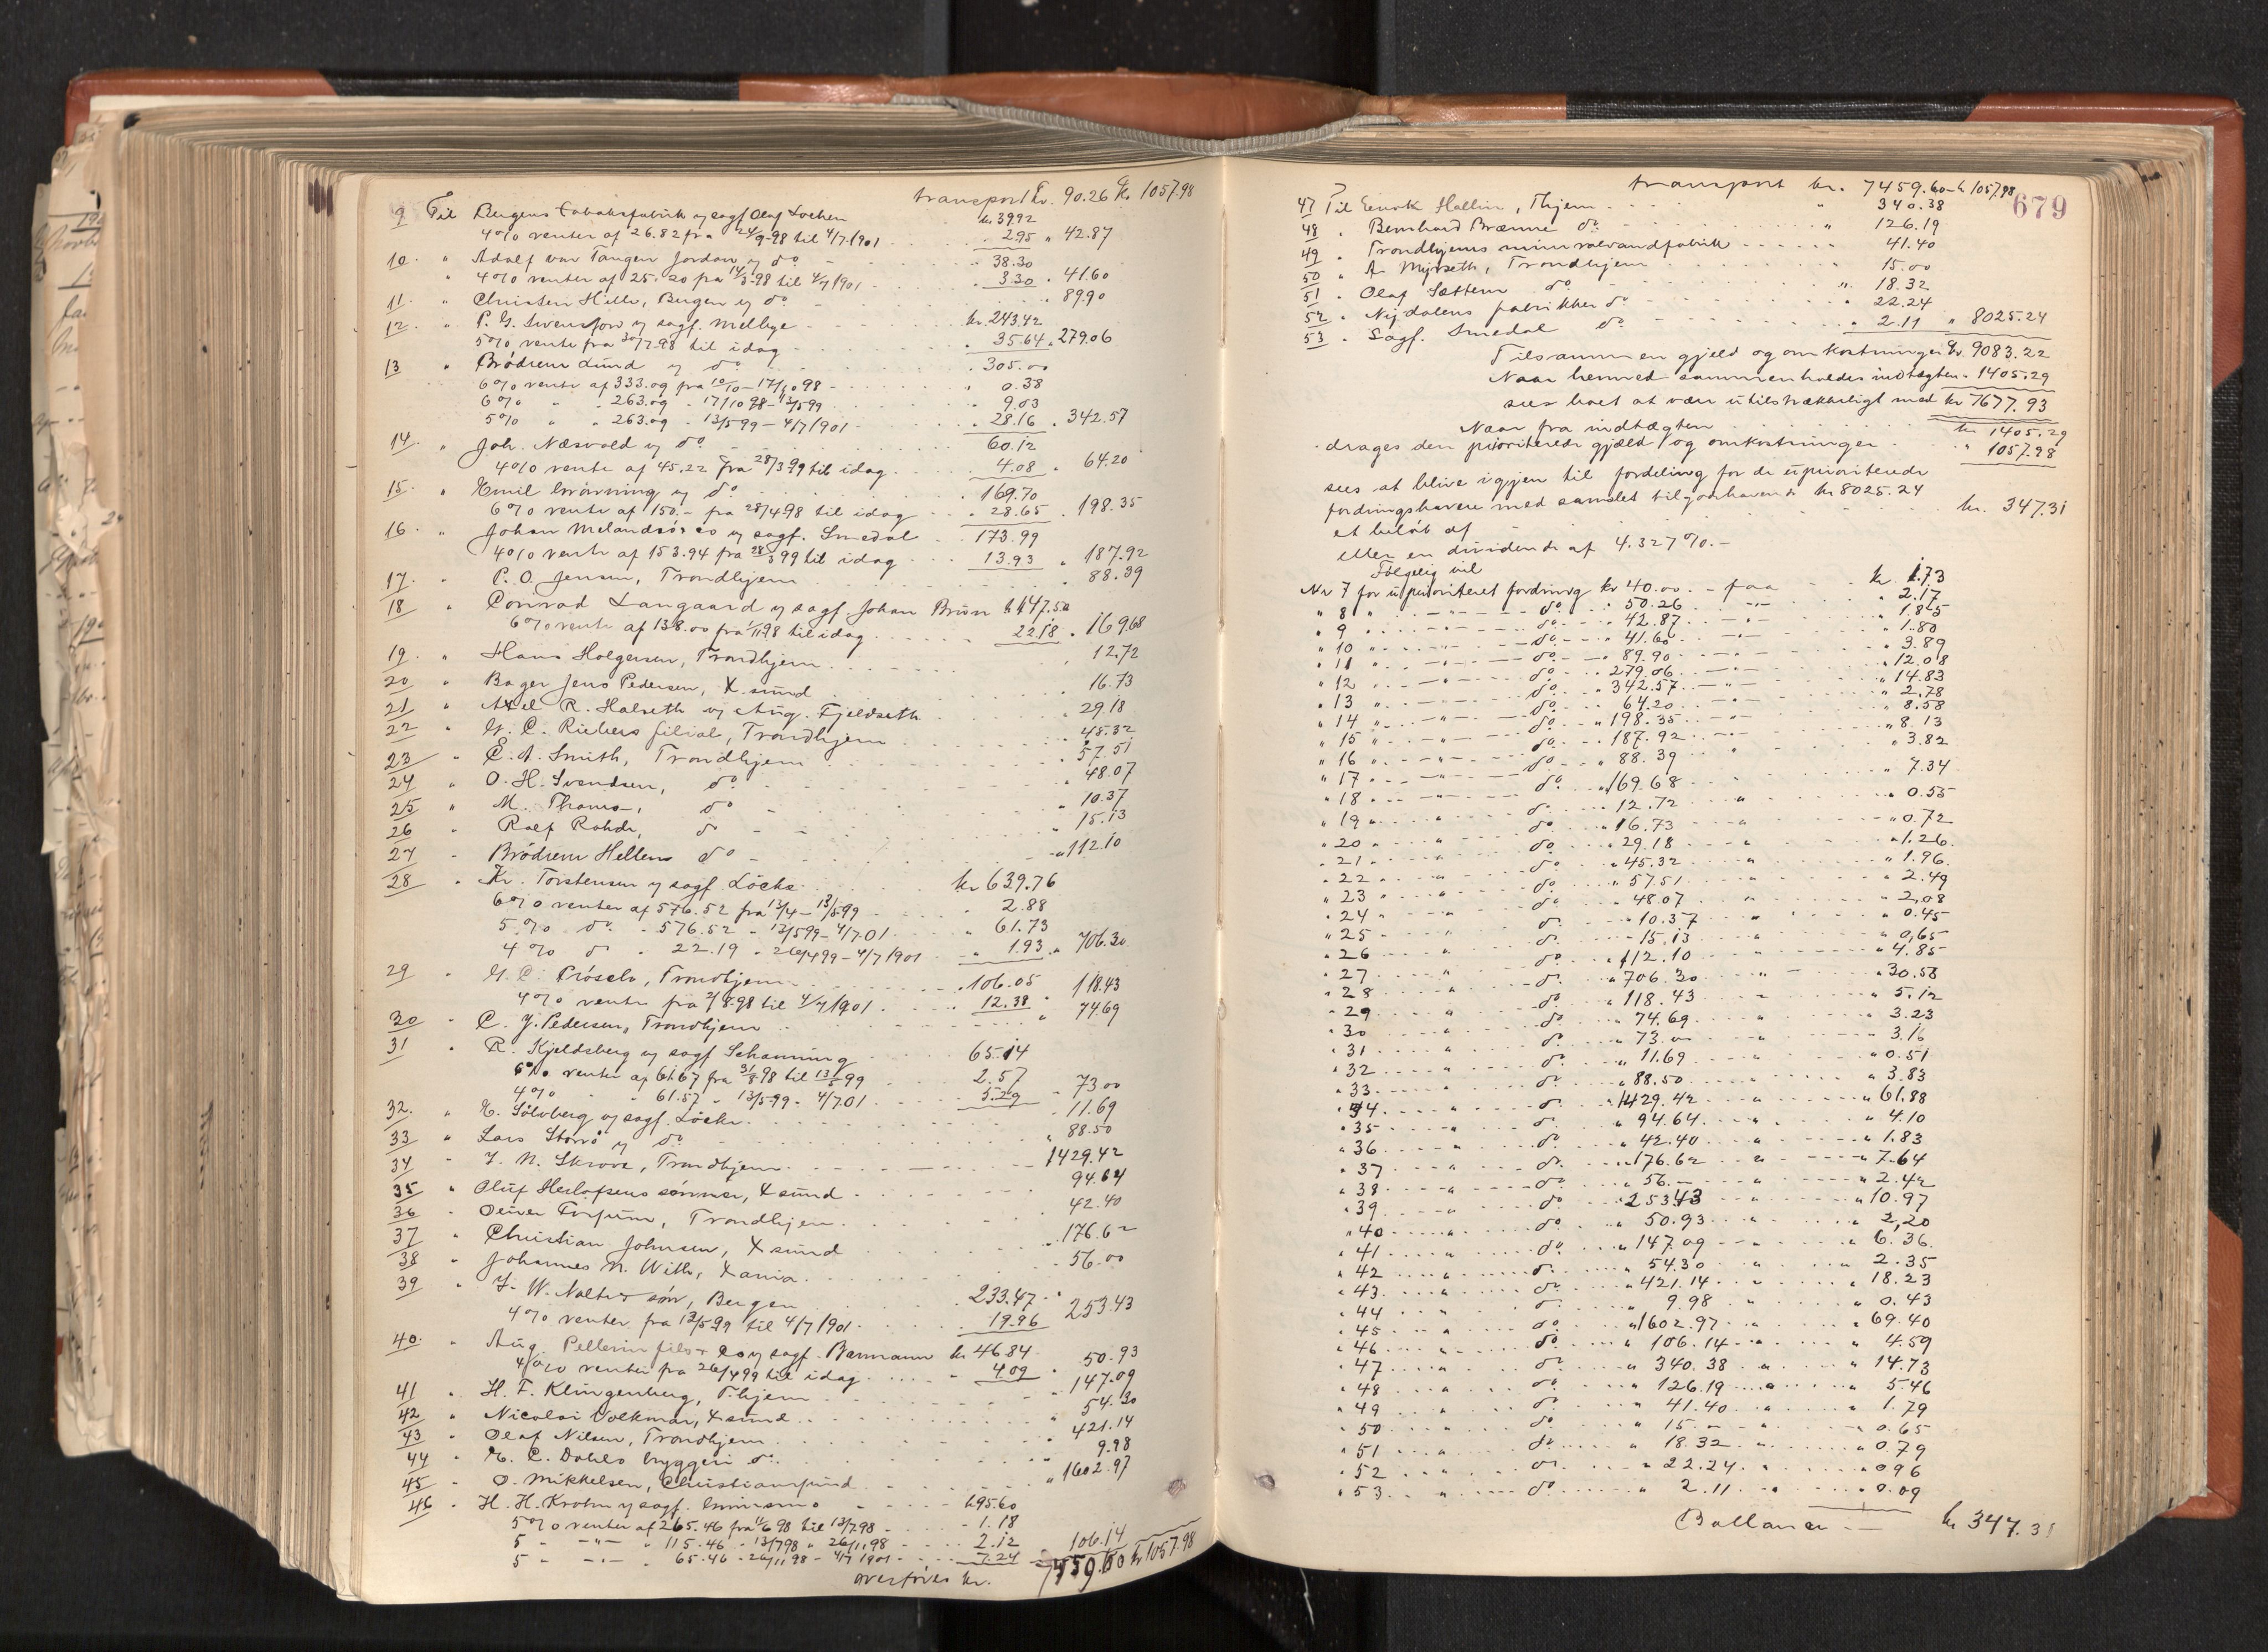 transport kr. 90.26 kr 1057.98
9 Til Bergens tobaksfabrik v sagf Olaf Lochen kr. 39.92
4% renter af 26.82 fra 24/9-98 til 4/7.1901 2.95 " 42.87
10. " Adolf von Tangen Jordan v do 38.30
" 4% renter af 25.20 fra 14/3-98 til 4/7 1901 3.30 " 41.60
11. " Christen Hille, Bergen v do 89.90
12. " P. G. Svenson v sagf. Mellbye kr. 243.42
5% rente fra 30/7-98 til idag 35.64 " 279.06
13 " Brödrene Lund v do 305.00
6% rente af 333.09 fra 10/10 - 17/10 98 - " 0.38
6% " " 263.09 - 17/10 98 - 13/5 99 " 9.03
5% " " 263.09 - 13/5 99 - 4/7 1901 - 28.16 . 342.57
14. " Joh. Næsvold v do 60.12
4% rente af 45.22 fra 28/3 99 til idag 4.08 " 64.20
15. " Emil v do 169.70
6% rente af 150.- fra 28/4 98 til idag 28.65 . 198.35
16. " Johan Melandsö & co v sagf. Smedal 173.99
4% rente af 153.94 fra 28/3 99 til idag 13.93 " 187.92
17. " P. O. Jensen, Trondhjem 88.39
18 " Conrad Langaard v sagf. Johan Bruun kr 147.50
6% rente af 138.00 fra 1/11 98 til idag 22.18 " 169.68
19. " Hans Holgersen, Trondhjem 12.72
20 " Bager Jens Pedersen, Xsund 16.73
21 " Axel R. Halseth v Aug. Fjeldseth 29.18
22 " G. C. Riebers filial, Trondhjem 45.32
23 " E. A. Smith, Trondhjem 57.51
24 " O. H. Svendsen, do 48.07
25 " M. Thams, do 10.37
26 " Rolf Rohde, do 15.13
27 - Brödrene Hellens do " 112.10
28 " Kr. Torstensen v sagf Löcke kr 639.76
6% renter af 576.52 fra 13/4 - 13/5 99 2.88
5% do. - 576.52 - 13/5 99 - 4/7.01 61.73
4% do - 22.19 - 26/4 99 - 4/7 1901 1.93 " 706.30
29 " G. C. , Trondhjem 106.05
4% rente fra 2/8-98 til 4/7 1901 12.38 118.43
30 - C. J. Pedersen, Trondhjem 74.69
31 " R. Kjeldsberg v sagf Schanning 65.14
6% renter af 61.67 fra 31/8-98 til 13/5 99 2.57
4% " 61.57 " 13/5-99 - 4/7.01 5.29 - 73.00
32. " E. Sölvberg v sagf. Löcke 11.69
33 " Lars Storrö v do 88.50
34 - J. N. Skrove, Trondhjem 1429.42
35 " Oluf Herlofsens sönner, Xsund 94.64
36 - Trondhjem 42.40
37 " Christian Johnsen, Xsund 176.62
38 " Johannes N. With, Xania 56.00
39 " J. W. Nolte & sön, Bergen 233.47
4% renter fra 13/5-99 til 4/7 1901 19.96 253.43
40. - Aug. Pellerin fils & co v sagf. Barmann kr 46.84
4% renter fra 26/4 99 til idag 4.09 50.93
41 " H. F. Klingenberg, T.hjem 147.09
42 " Nicolai Volkmar, Xsund 54.30
43 " Olaf Nilsen, Trondhjem 421.14
44 " E. C. Dahls bryggeri do 9.98
45 - O. Mikkelsen, Christiansund " 1602.97
46 - H. H. Krohn v sagf. 95.60
5% renter af 265.46 fra 11/6 98 til 13/7.98 1.18
5 - -"- " 115.46 - 13/7 98 " 26/11.98 2.12
5 - -"- " 65.46 - 26/11.98 - 4/7 1901 7.24 106.14
overföres kr. 7459.60 kr 1057.98
679
transport kr. 7459.60 kr 1057.98
47 Til Enok Hallin, Thjem " 340.38
48 " Bernhard Brænne do " 126.19
49 " Trondhjems mineralvandfabrik 41.40
50 " A. Myrseth, Trondhjem " 15.00
51 . Olaf Sættem do " 18.32
52 " Nydalens fabrikker do 22.24
53 . Sagf. Smedal do " 2.11 " 8025.24
Tilsammen gjeld og omkostninger kr. 9083.22
Naar hermed sammenholdes indtægten - 1405.29
sees boet at være utilstrækkeligt med kr 7677.93
Naar fra indtægten kr 1405.29
drages den prioriterede gjæld og omkostninger " 1057.98
sees at blive igjen til fordeling for de uprioriterede
fordringshavere med samlet tilgodehavende kr 8025.24
et beløb af kr. 347.31
eller en dividende af 4.327%.-
Følgelig vil
Nr 7 for uprioriteret fordring kr 40.00 - faa kr. 1.73
" 8 " do " 50.26 " 2.17
" 9 do " 42.87 " 1.85
" 10 " do " 41.60 " 1.80
" 11 " do " 89.90 " 3.89
" 12 " do " 279.06 " 12.08
" 13 " do " 342.57 " 14.83
" 14 " do " 64.20 " 2.78
" 15 " do " 198.35 " 8.58
" 16 " do " 187.92 " 8.13
" 17 " do " 88.39 " 3.82
" 18 " do " 169.68 " 7.34
" 19 " do " 12.72 " 0.55
" 20 " do " 16.73 " 0.72
" 21 " do " 29.18 " 1.26
" 22 " do " 45.32 " 1.96
" 23 " do " 57.51 " 2.49
" 24 " do " 48.07 " 2.08
" 25 " do " 10.37 " 0.45
" 26 " do " 15.13 " 0.65
" 27 " do " 112.10 " 4.85
" 28 " do " 706.30 " 30.58
" 29 " do " 118.43 " 5.12
" 30 " do " 74.69 " 3.23
" 31 " do " 73.00 " 3.16
" 32 " do " 11.69 " 0.51
" 33 " do " 88.50 " 3.83
" 34 " do " 1429.42 " 61.88
" 35 " do " 94.64 " 4.10
" 36 " do " 42.40 " 1.83
" 37 " do " 176.62 " 7.64
" 38 " do " 56.- " 2.42
" 39 " do " 253.43 " 10.97
" 40 " do " 50.93 " 2.20
" 41 " do " 147.09 " 6.36
" 42 " do " 54.30 " 2.35
" 43 " do " 421.14 " 18.23
" 44 " do " 9.98 " 0.43
" 45 " do " 1602.97 " 69.40
" 46 " do " 106.14 " 4.59
" 47 " do " 340.38 " 14.73
" 48 " do " 126.19 " 5.46
" 49 " do " 41.40 " 1.79
" 50 " do " 15.- " 0.65
" 51 " do " 18.32 " 0.79
" 52 " do " 22.24 " 0.96
" 53 " do " 2.11 " 0.09
Ballance kr 347.31